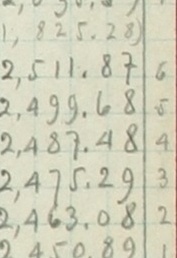 1, 825.28)
2,511.87 6
2,499.68 5
2,487.48 4
2,475.29 3
2,463.08 2
2,450.89 1